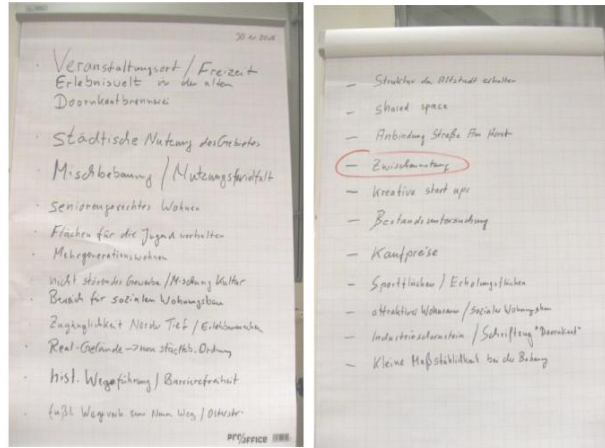 30.11.2016
Veranstaltungsort / Freizeit
Erlebniswelt in der alten
Doornkaatbrennerei
Städtische Nutzung des Gebietes
Mischbebauung / Nutzungsvielfalt
seniorengerechtes Wohnen
Flächen für die Jugend vorhalten
Mehrgenerationswohnen
nicht störendes Gewerbe / Mischung Kultur
Bereich für sozialen Wohnungsbau
Zugänglichkeit Norder Tief /
Real-Gelände → neu städtb. Ordnung
hist. Wegeführung / Barrierefreiheit
fußl. Wegeverb. zum Neuen Weg / Osterstr.
PRO/OFFICE
– Struktur der Altstadt erhalten
– shared space
– Anbindung Straße Am Horst
– Zwischennutzung
– Kreative start ups
– Bestandsuntersuchung
– Kaufpreise
– Sportflächen / Erholungsflächen
– attraktives Wohnen / sozialer Wohnungsbau
– Industrieschornstein / Schriftzug "Doornkaat"
– Kleine Maßstäblichkeit bei der Bebauung